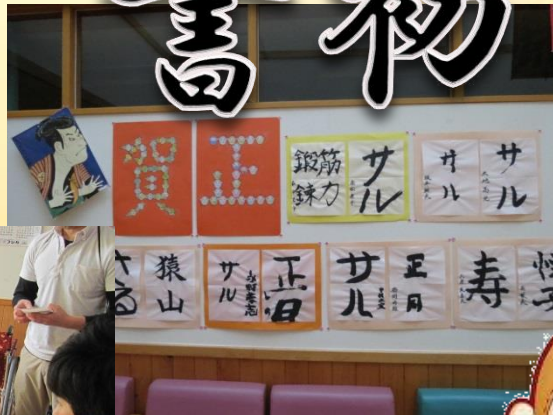 書初
賀正
筋力
鍛錬
サル
サル
サル
さる
猿山
サル
正月
サル
正月
寿